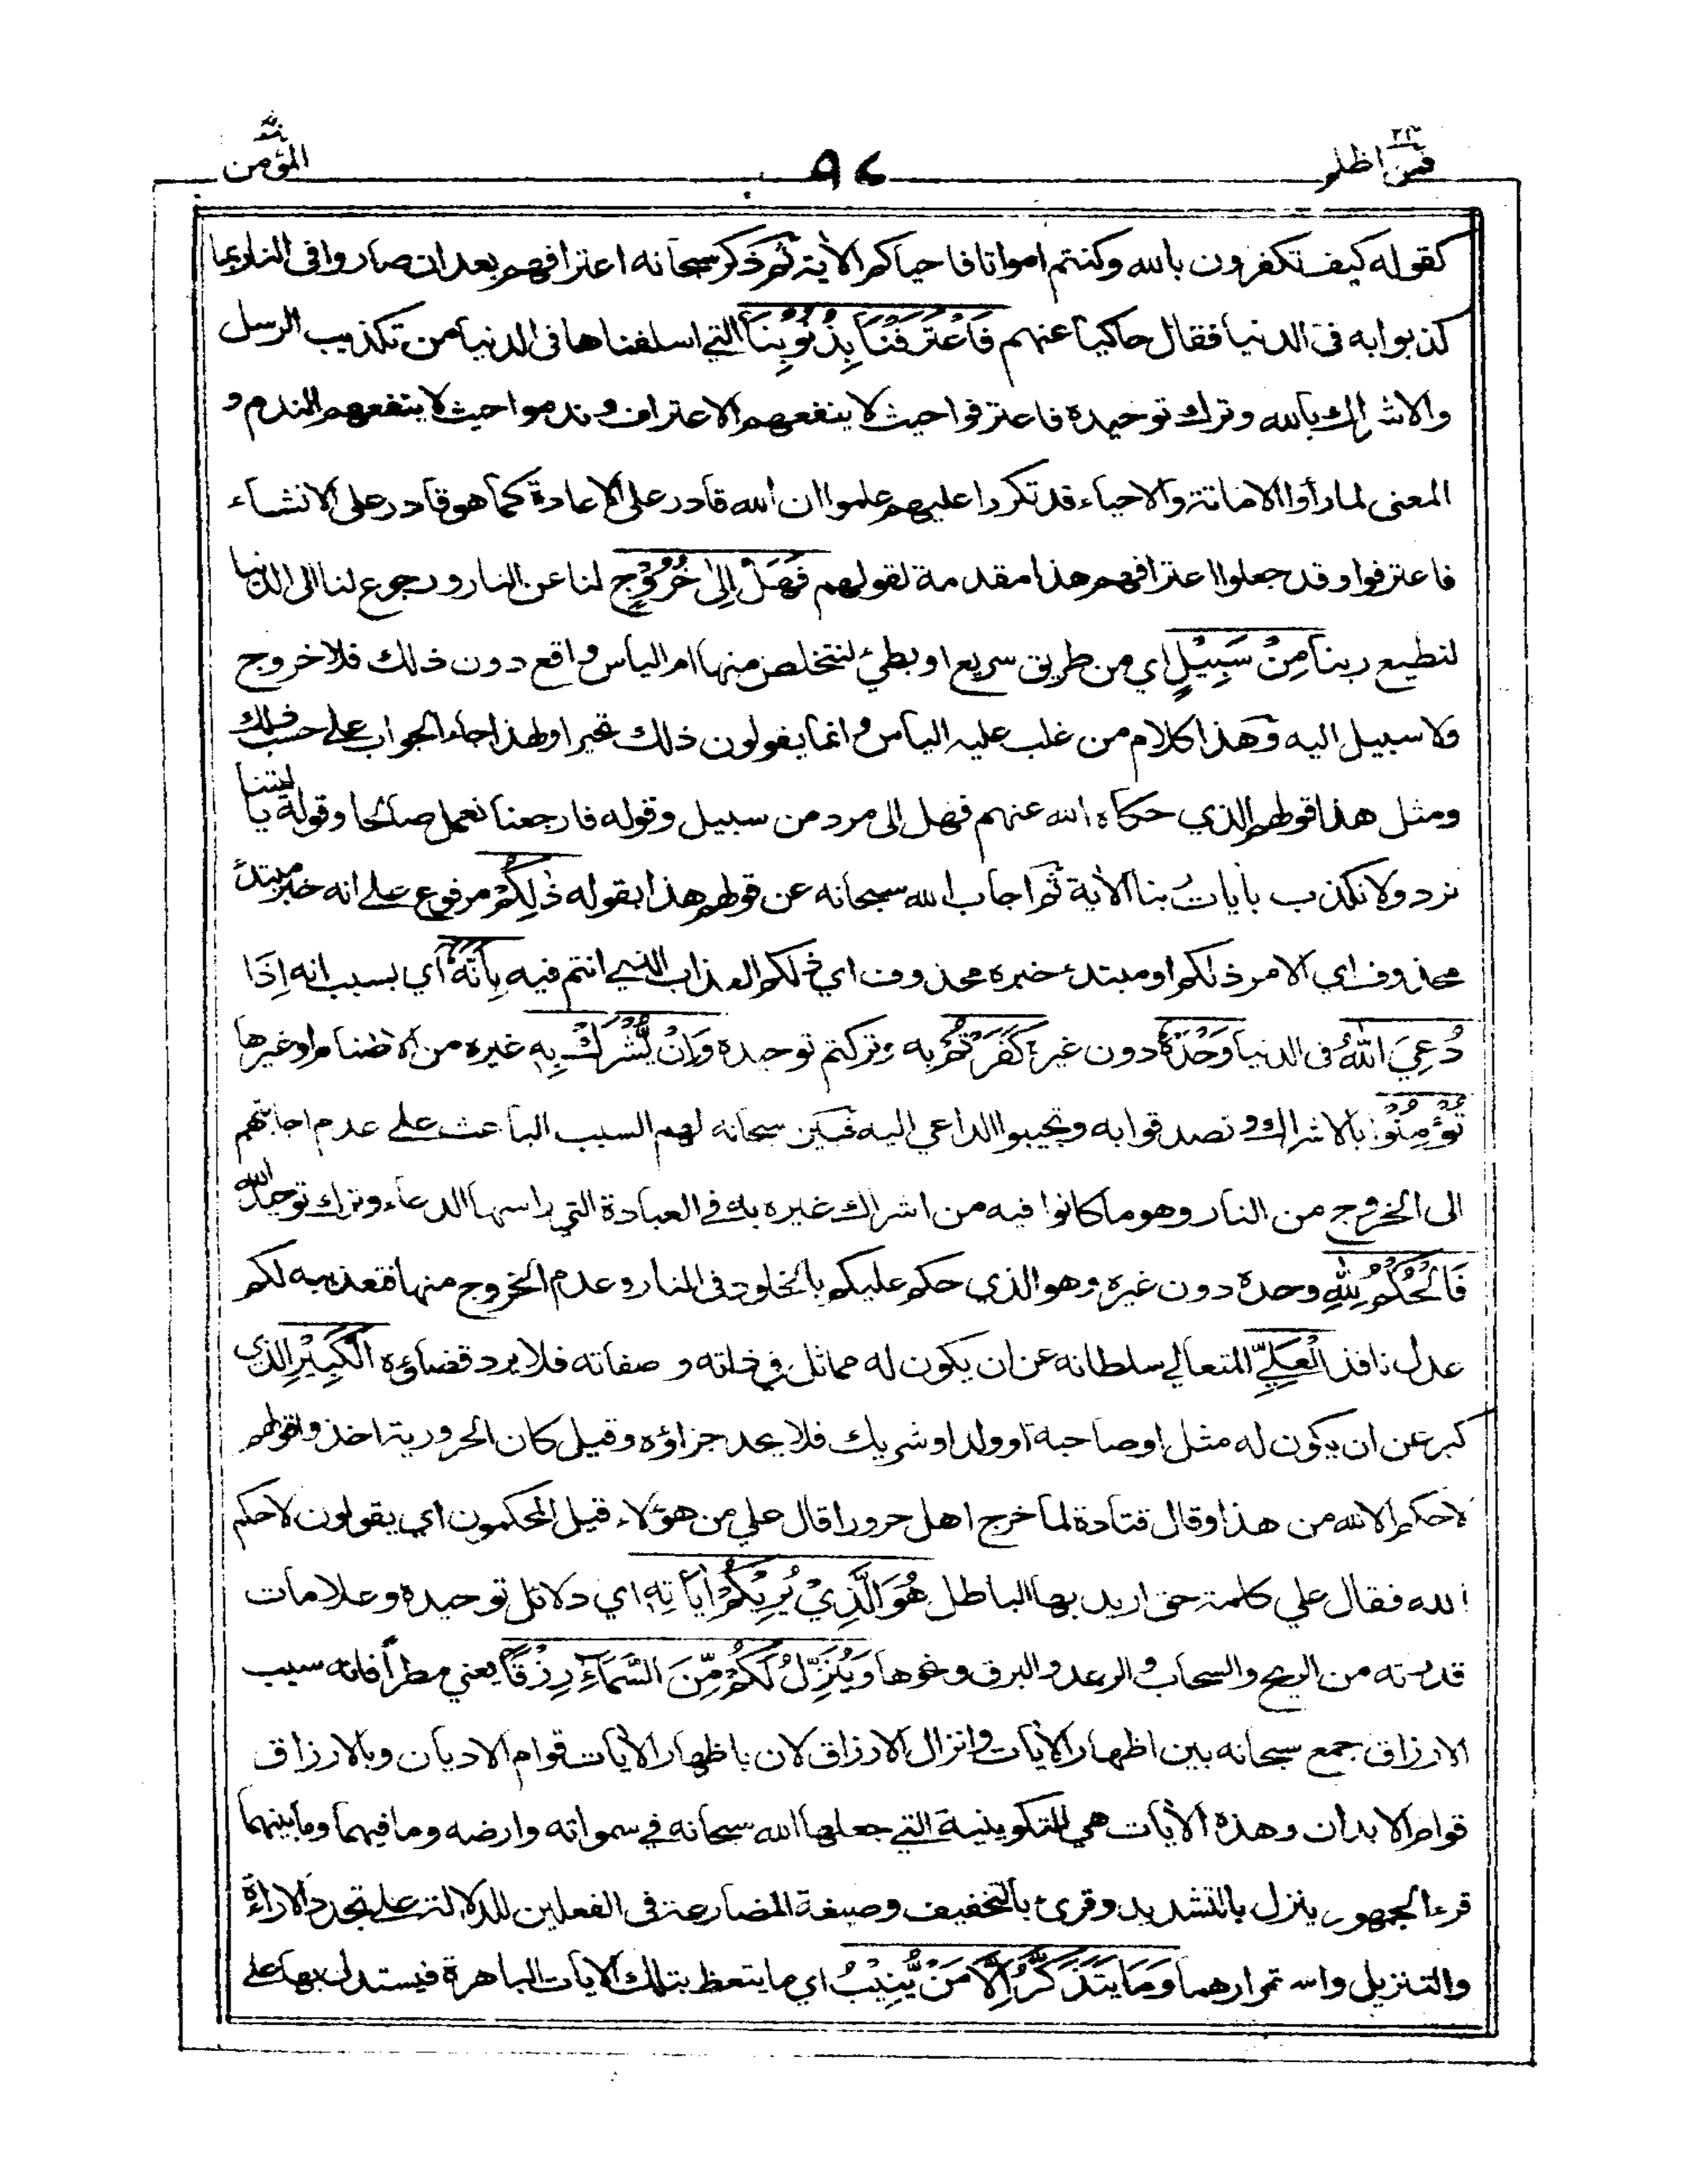 فمن اظلم ٢٤
٩٤
المؤمن
كقوله كيف تكفرون بالله وكنتم امواتا فاحياكم الأية ثم ذكر سبحانه اعترافهم بعد ان صاروا في النار بما
كذبوا به في الدنيا فقال حاكيا عنهم فَاعْتَرَفْنَا بِذُنُوبِنَا التي اسلفناها في الدنيا من تكذيب الرسل
والاشراك بالله وترك توحيده فاعترفوا حيث لا ينفعهم الاعتراف وندموا حيث لا ينفعهم الندم و
المعنى لما رأوا الاماتة والاحياء قد تكررا عليهم علموا ان الله قادر على الاعادة كما هو قادر على الانشاء
فاعترفوا وقد جعلوا اعترافهم هذا مقدمة لقولهم فَهَلْ إِلَىٰ خُرُوْجٍ لنا عن النار ورجوع لنا الى الدنيا
لنطيع ربنا مِنْ سَبِيْلٍ اي من طريق سريع او بطيئ لنتخلص منها ام الياس واقع دون ذلك فلا خروج
ولا سبيل اليه وهذا كلام من غلب عليه الياس وانما يقولون ذلك تحيرا ولهذا جاء الجواب على حسب ذلك
ومثل هذا قولهم الذي حكاه الله عنهم فهل الى مرد من سبيل وقوله فارجعنا نعمل صالحا وقوله يا ليتنا
نرد ولا نكذب بأيات ربنا الأية ثم اجاب الله سبحانه عن قولهم هذا بقوله ذٰلِكُمْ مرفوع على انه خبر مبتدئ
محذوف اي الامر ذلكم او مبتدء خبره محذوف اي ذلكم العذاب الذي انتم فيه بِأَنَّهٗ اي بسبب انه إِذَا
دُعِيَ اللّٰهُ في الدنيا وَحْدَهٗ دون غيره كَفَرْتُمْ به وتركتم توحيده وَإِنْ يُّشْرَكْ بِهٖ غيره من الاصنام او غيرها
تُؤْمِنُوْا بالاشراك وتصدقوا به وتجيبوا الداعي اليه فبين سبحانه لهم السبب الباعث على عدم اجابتهم
الى الخروج من النار وهو ما كانوا فيه من اشراك غيره به في العبادة التي راسها الدعاء وترك توحيد الله
فَالْحُكْمُ لِلّٰهِ وحده دون غيره وهو الذي حكم عليكم بالخلود في النار وعدم الخروج منها فتعذيبه لكم
عدل نافذ الْعَلِيِّ المتعالي سلطانه عن ان يكون له مماثل في ذاته و صفاته فلا يرد قضاؤه الْكَبِيْرِ الذي
كبر عن ان يكون له مثل او صاحبة او ولد او شريك فلا يحد جزاؤه وقيل كان الحرورية اخذوا قولهم
لا حكم الا لله من هذا وقال قتادة لما خرج اهل حرورا قال علي من هؤلاء قيل المحكمون اي يقولون لا حكم الا
لله فقال علي كلمة حق اريد بها الباطل هُوَ الَّذِيْ يُرِيْكُمْ أٰيَاتِهٖ اي دلائل توحيده وعلامات
قدرته من الريح والسحاب والرعد والبرق ونحوها وَيُنَزِّلُ لَكُمْ مِّنَ السَّمَآءِ رِزْقًا يعني مطرا فانه سبب
الارزاق جمع سبحانه بين اظهار الأيات وانزال الارزاق لان باظهار الأيات قوام الاديان وبالارزاق
قوام الابدان وهذه الأيات هي التكوينية التي جعلها الله سبحانه في سمواته وارضه وما فيهما وما بينهما
قرء الجمهور ينزل بالتشديد وقرئ بالتخفيف وصيغة المضارعة في الفعلين للدلالة على تجدد الاراءة
والتنزيل واستمرارهما وَمَا يَتَذَكَّرُ إِلَّا مَنْ يُّنِيْبُ اي ما يتعظ بتلك الايات الباهرة فيستدل بها على